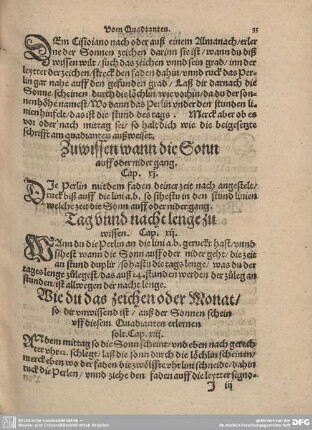 Vom Quadranten. 35
DEm Cisioiano nach oder auß einem Almanach/erler
ne der Sonnen zeichen darinn sie ist/wann du diß
wissen wilt/such das zeichen vnnd sein grad/inn der
leytter der zeichen/streck den faden dahin/vnnd ruck das Per
lin gar nahe auff den gefunden grad/ Laß dir darnach die
Sonne scheinen durch die löchlin wie vorhin/da bd der son-
nenhöhe namest/Wo dann das Perlin vnder den stunden li
nien hinfelt/das ist die stund des tags. Merck aber ob es
vor oder/nach mittag sei/so halt dich wie die beigesetzte
schrifft am quadranten außweiset.
Zu wissen wann die Sonn
auff oder nider gang.
Cap. xj.
DJe Perlin mit dem faden deiner zeit nach angestelt/
ruck biß auff die lini a.b. so sihestu in den stund linien
welche zeit die Sonn auff oder nider gang.
Tag vnnd nacht lenge zu
wissen. Cap. xij.
WAnn du die Perlin an die lini a.b. geruckt hast/vnnd
sihest wann die Sonn auff oder nider geht/die zeit
an stund dupplir/so hastu die tags lenge/was du der
tages lenge zůlegest/das auß 24. stunden werden der zůleg an
stunden/ist allwegen der nacht lenge.
Wie du das zeichen oder Monat/
so dir vnwissend ist/auß der Sonnen schein
vff disem Quadranten erlernen
solt. Cap. xiij.
AN dem mittag so die Sonn scheint/vnd eben nach gerech
ter vhr 12. schlegt/laß die sonn durch die löchlin scheinen/
merck eben wo der faden die zwölffte vhr lini schneide/dahin
ruck die Perlen/vnnd ziehe den faden auff die leytter signo-
J iij